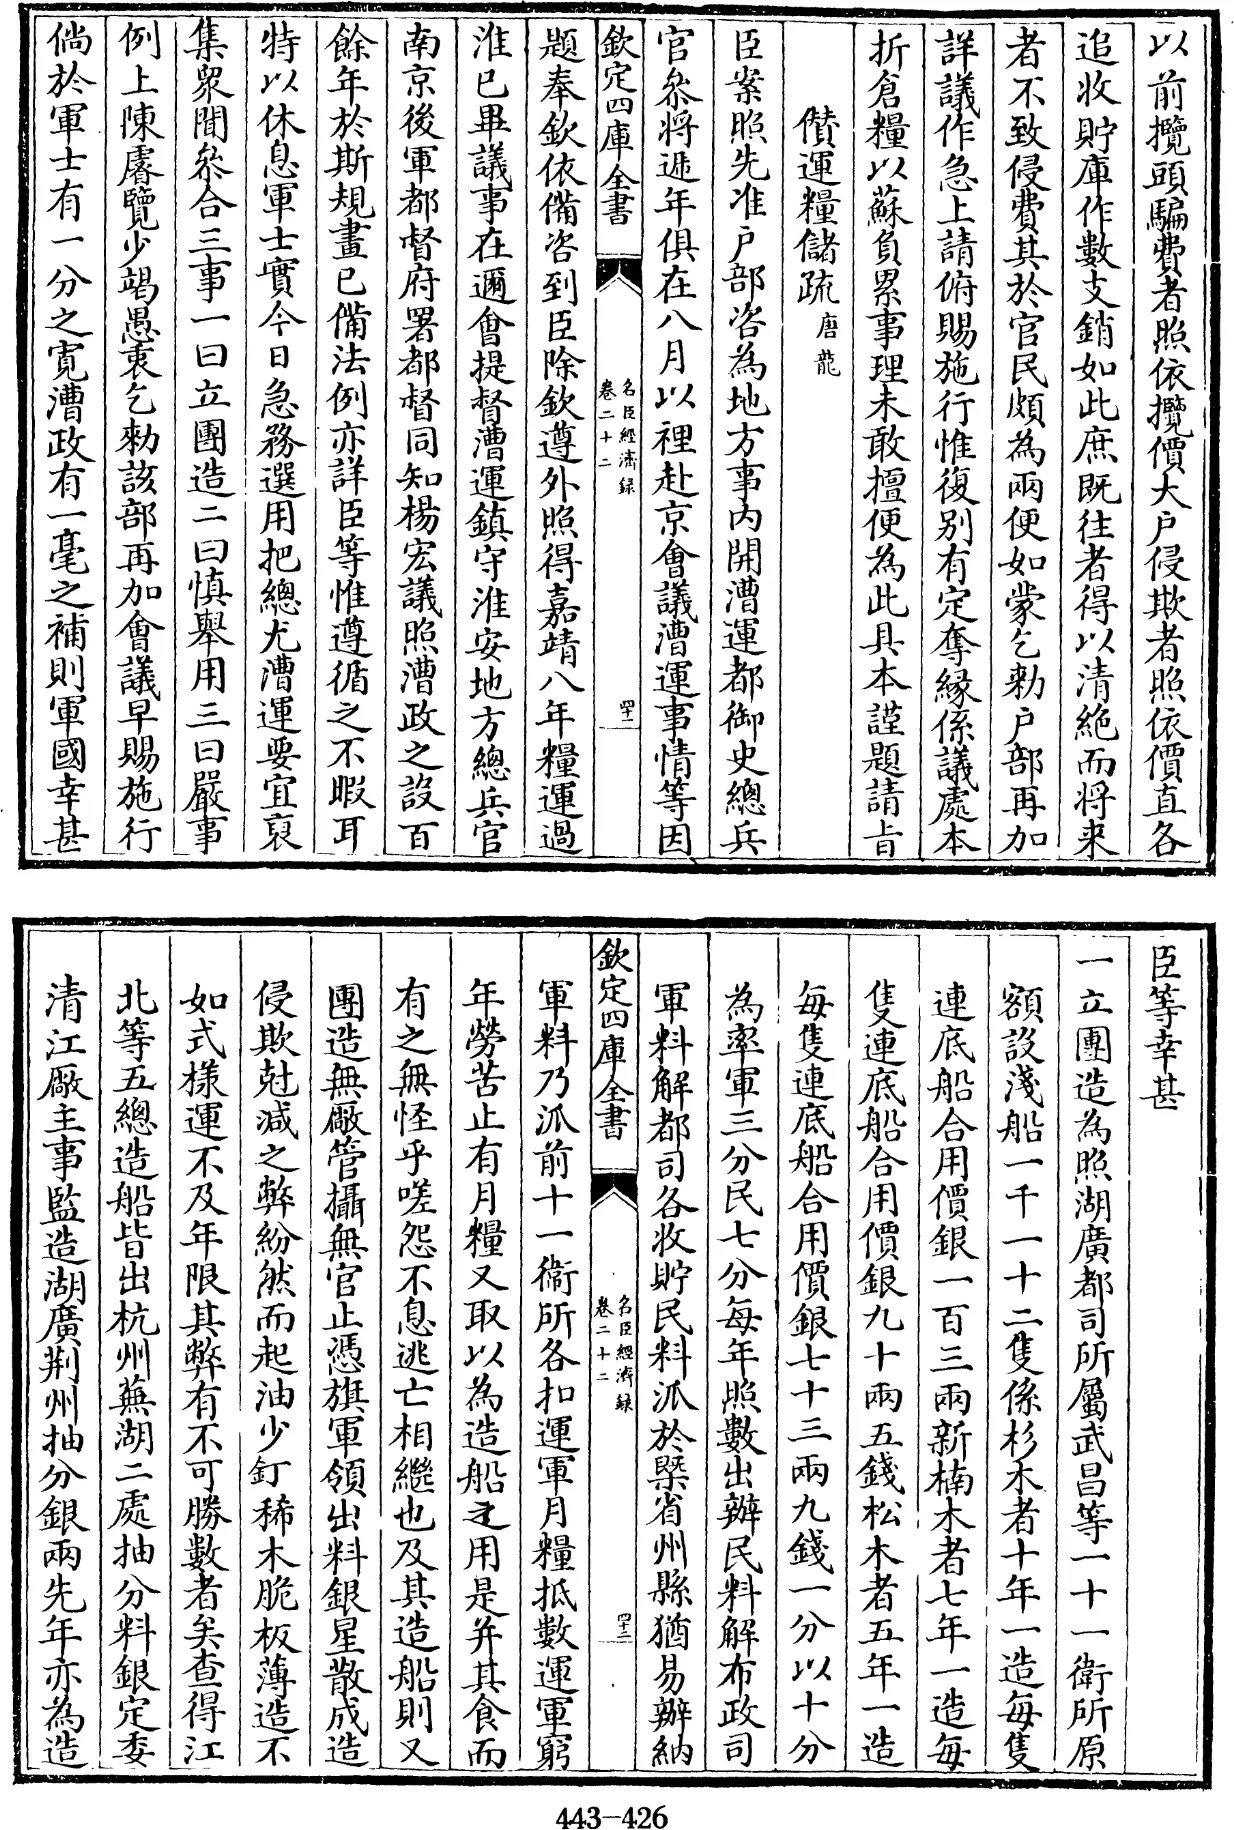 以前攬頭騙費者照依攬價大戶侵欺者照依價直各
追收貯庫作數支銷如此庶既往者得以清絶而将来
者不致侵費其於官民頗為兩便如蒙乞勅户部再加
詳議作急上請俯賜施行惟復别有定奪緣係議處本
折倉糧以蘇負累事理未敢擅便為此具本謹題請㫖
儹運糧儲疏 唐龍
臣案照先准户部咨為地方事内開漕運都御史總兵
官叅將遞年俱在八月以裡赴京會議漕運事情等因
欽定四庫全書
名臣經濟録
卷二十二
四十二
題奉欽依備咨到臣除欽遵外照得嘉靖八年糧運過
淮已畢議事在邇會提督漕運鎮守淮安地方總兵官
南京後軍都督府署都督同知楊宏議照漕政之設百
餘年於斯規畫已備法例亦詳臣等惟遵循之不暇耳
特以休息軍士實今日急務選用把總尤漕運要宜裒
集衆聞叅合三事一曰立團造二曰慎舉用三曰嚴事
例上陳睿覽少竭愚衷乞勅該部再加會議早賜施行
倘於軍士有一分之寛漕政有一毫之補則軍國幸甚
臣等幸甚
一立團造為照湖廣都司所屬武昌等一十一衛所原
額設淺船一千一十二隻係杉木者十年一造每隻
連底船合用價銀一百三兩新楠木者七年一造每
隻連底船合用價銀九十兩五錢松木者五年一造
每隻連底船合用價銀七十三兩九錢一分以十分
為率軍三分民七分每年照數出辦民料解布政司
軍料解都司各收貯民料派於槩省州縣猶易辦納
欽定四庫全書
名臣經濟録
卷二十二
四十三
軍料乃派前十一衞所各扣運軍月糧抵數運軍窮
年勞苦止有月糧又取以為造船之用是并其食而
有之無怪乎嗟怨不息逃亡相繼也及其造船則又
團造無厰管攝無官止憑旗軍領出料銀星散成造
侵欺尅减之弊紛然而起油少釘稀木脆板薄造不
如式様運不及年限其弊有不可勝數者矣查得江
北等五總造船皆出杭州蕪湖二處抽分料銀定委
清江厰主事監造湖廣荆州抽分銀兩先年亦為造
443-426